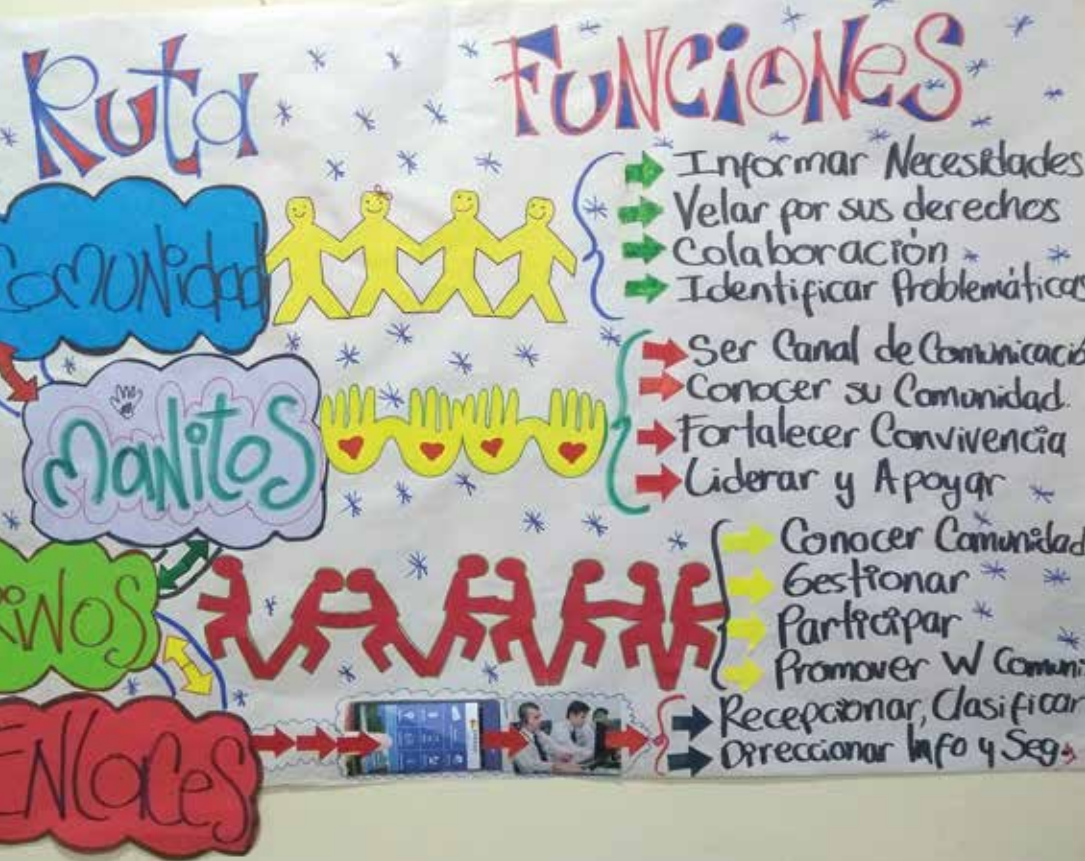 Ruta
FUNCiONeS
Comunidad
Informar Necesidades
Velar por sus derechos
Colaboración
Identificar Problemáticas
manitos
Ser Canal de Comunicació
Conocer su Comunidad.
Fortalecer Convivencia
Liderar y Apoyar
iNOS
Conocer Comunidad
Gestionar
Participar
Promover W Comuni
ENlaces
Recepcionar, Clasificar
Direccionar Info y Seg.